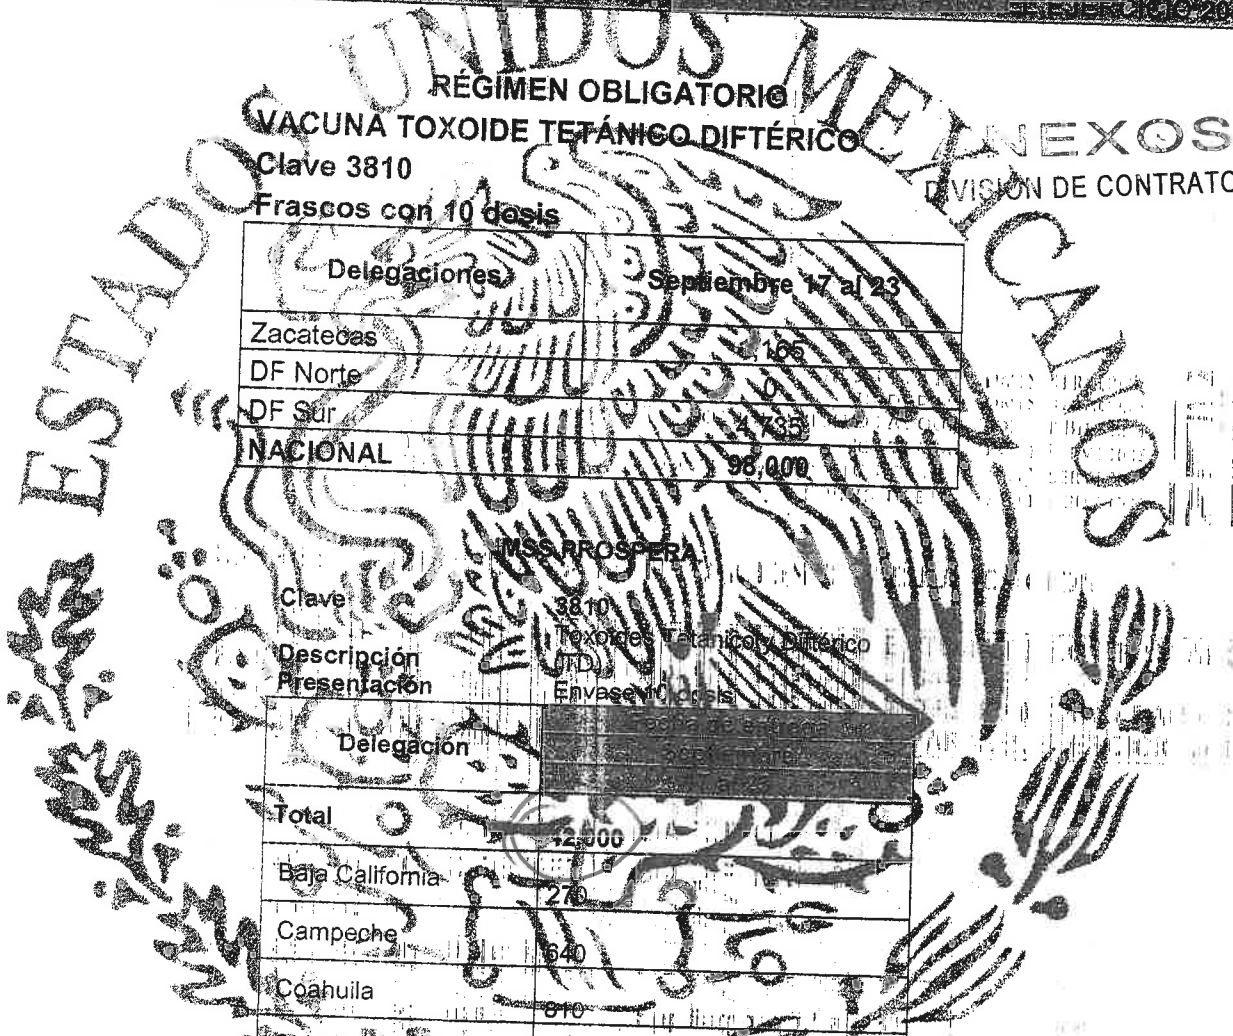 ESTADOS UNIDOS MEXICANOS
RÉGIMEN OBLIGATORIO
VACUNA TOXOIDE TETÁNICO DIFTÉRICO
Clave 3810
Frascos con 10 dosis
NEXOS
DIVISIÓN DE CONTRATO
Delegaciones Septiembre 17 al 23
Zacatecas 165
DF Norte 0
DF Sur 4,735
NACIONAL 98,000
IMSS PROSPERA
Clave 3810
Descripción Toxoides Tetanico y Diftérico
(TD)
Presentación Envase 10 dosis
Delegación Fecha de entrega
Total 42,000
Baja California 270
Campeche 640
Coahuila 810